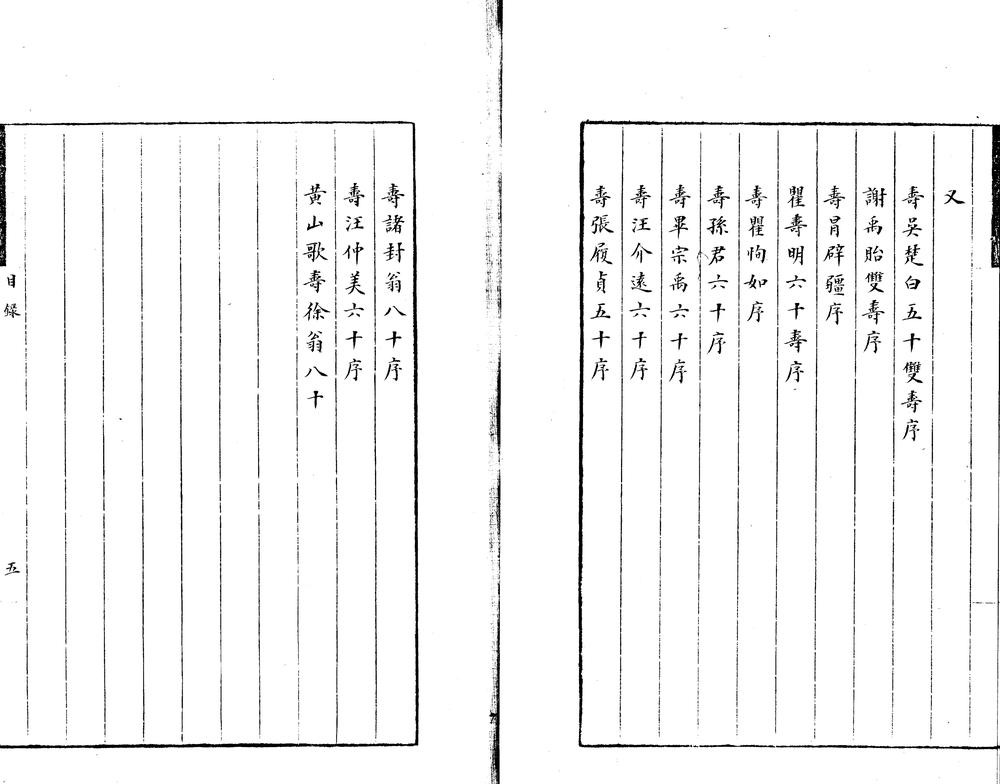 又
壽吳楚白五十雙壽序
謝禹貽雙壽序
壽冒辟疆序
瞿壽明六十壽序
壽瞿恂如序
壽孫君六十序
壽畢宗禹六十序
壽汪介遠六十序
壽張履貞五十序
壽諸封翁八十序
壽汪仲美六十序
黃山歌壽徐翁八十
目錄
五